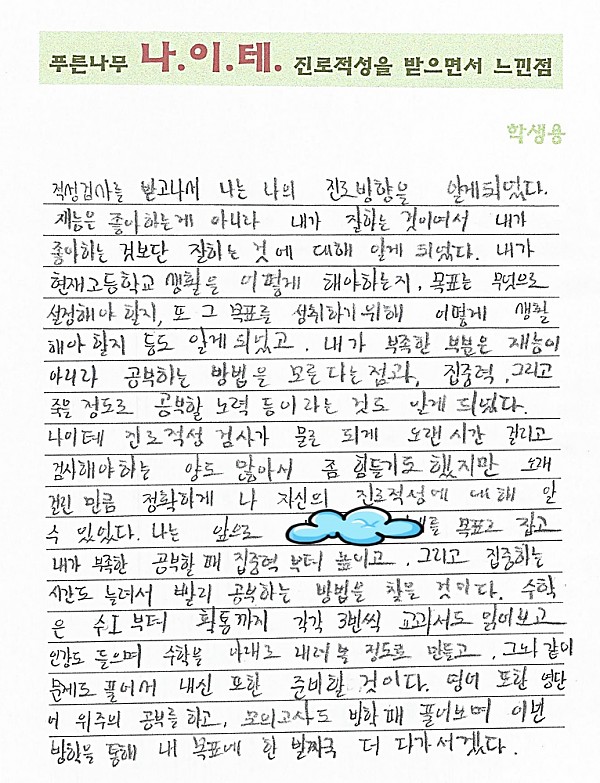 푸른나무 나.이.테. 진로적성을 받으면서 느낀점
학생용
적성검사를 받고나서 나는 나의 진로방향을 알게되었다.
재능은 좋아하는게 아니라 내가 잘하는 것이여서 내가
좋아하는 것보단 잘하는 것에 대해 알게 되었다. 내가
현재고등학교 생활을 어떻게 해야하는지, 목표는 무엇으로
설정해야 할지, 또 그 목표를 성취하기위해 어떻게 생활
해야 할지 등도 알게되었고, 내가 부족한 부분은 재능이
아니라 공부하는 방법을 모른다는점과, 집중력, 그리고
죽을 정도로 공부할 노력 등이라는 것도 알게 되었다.
나이테 진로적성 검사가 물론 되게 오랜시간 걸리고
검사해야하는 양도 많아서 좀 힘들기도 했지만 오래
걸린 만큼 정확하게 나 자신의 진로적성에 대해 알
수 있었다. 나는 앞으로 를 목표로 잡고
내가 부족한 공부할때 집중력 부터 높이고, 그리고 집중하는
시간도 늘려서 빨리 공부하는 방법을 찾을 것이다. 수학
은 수I부터 확통까지 각각 3번씩 교과서도 읽어보고
인강도 들으며 수학을 아래로 내려볼 정도로 만들고, 그와 같이
문제도 풀어서 내신 또한 준비할 것이다. 영어 또한 영단
어 위주의 공부를 하고, 모의고사도 방학때 풀어보며 이번
방학을 통해 내 목표에 한 발짜국 더 다가서겠다.